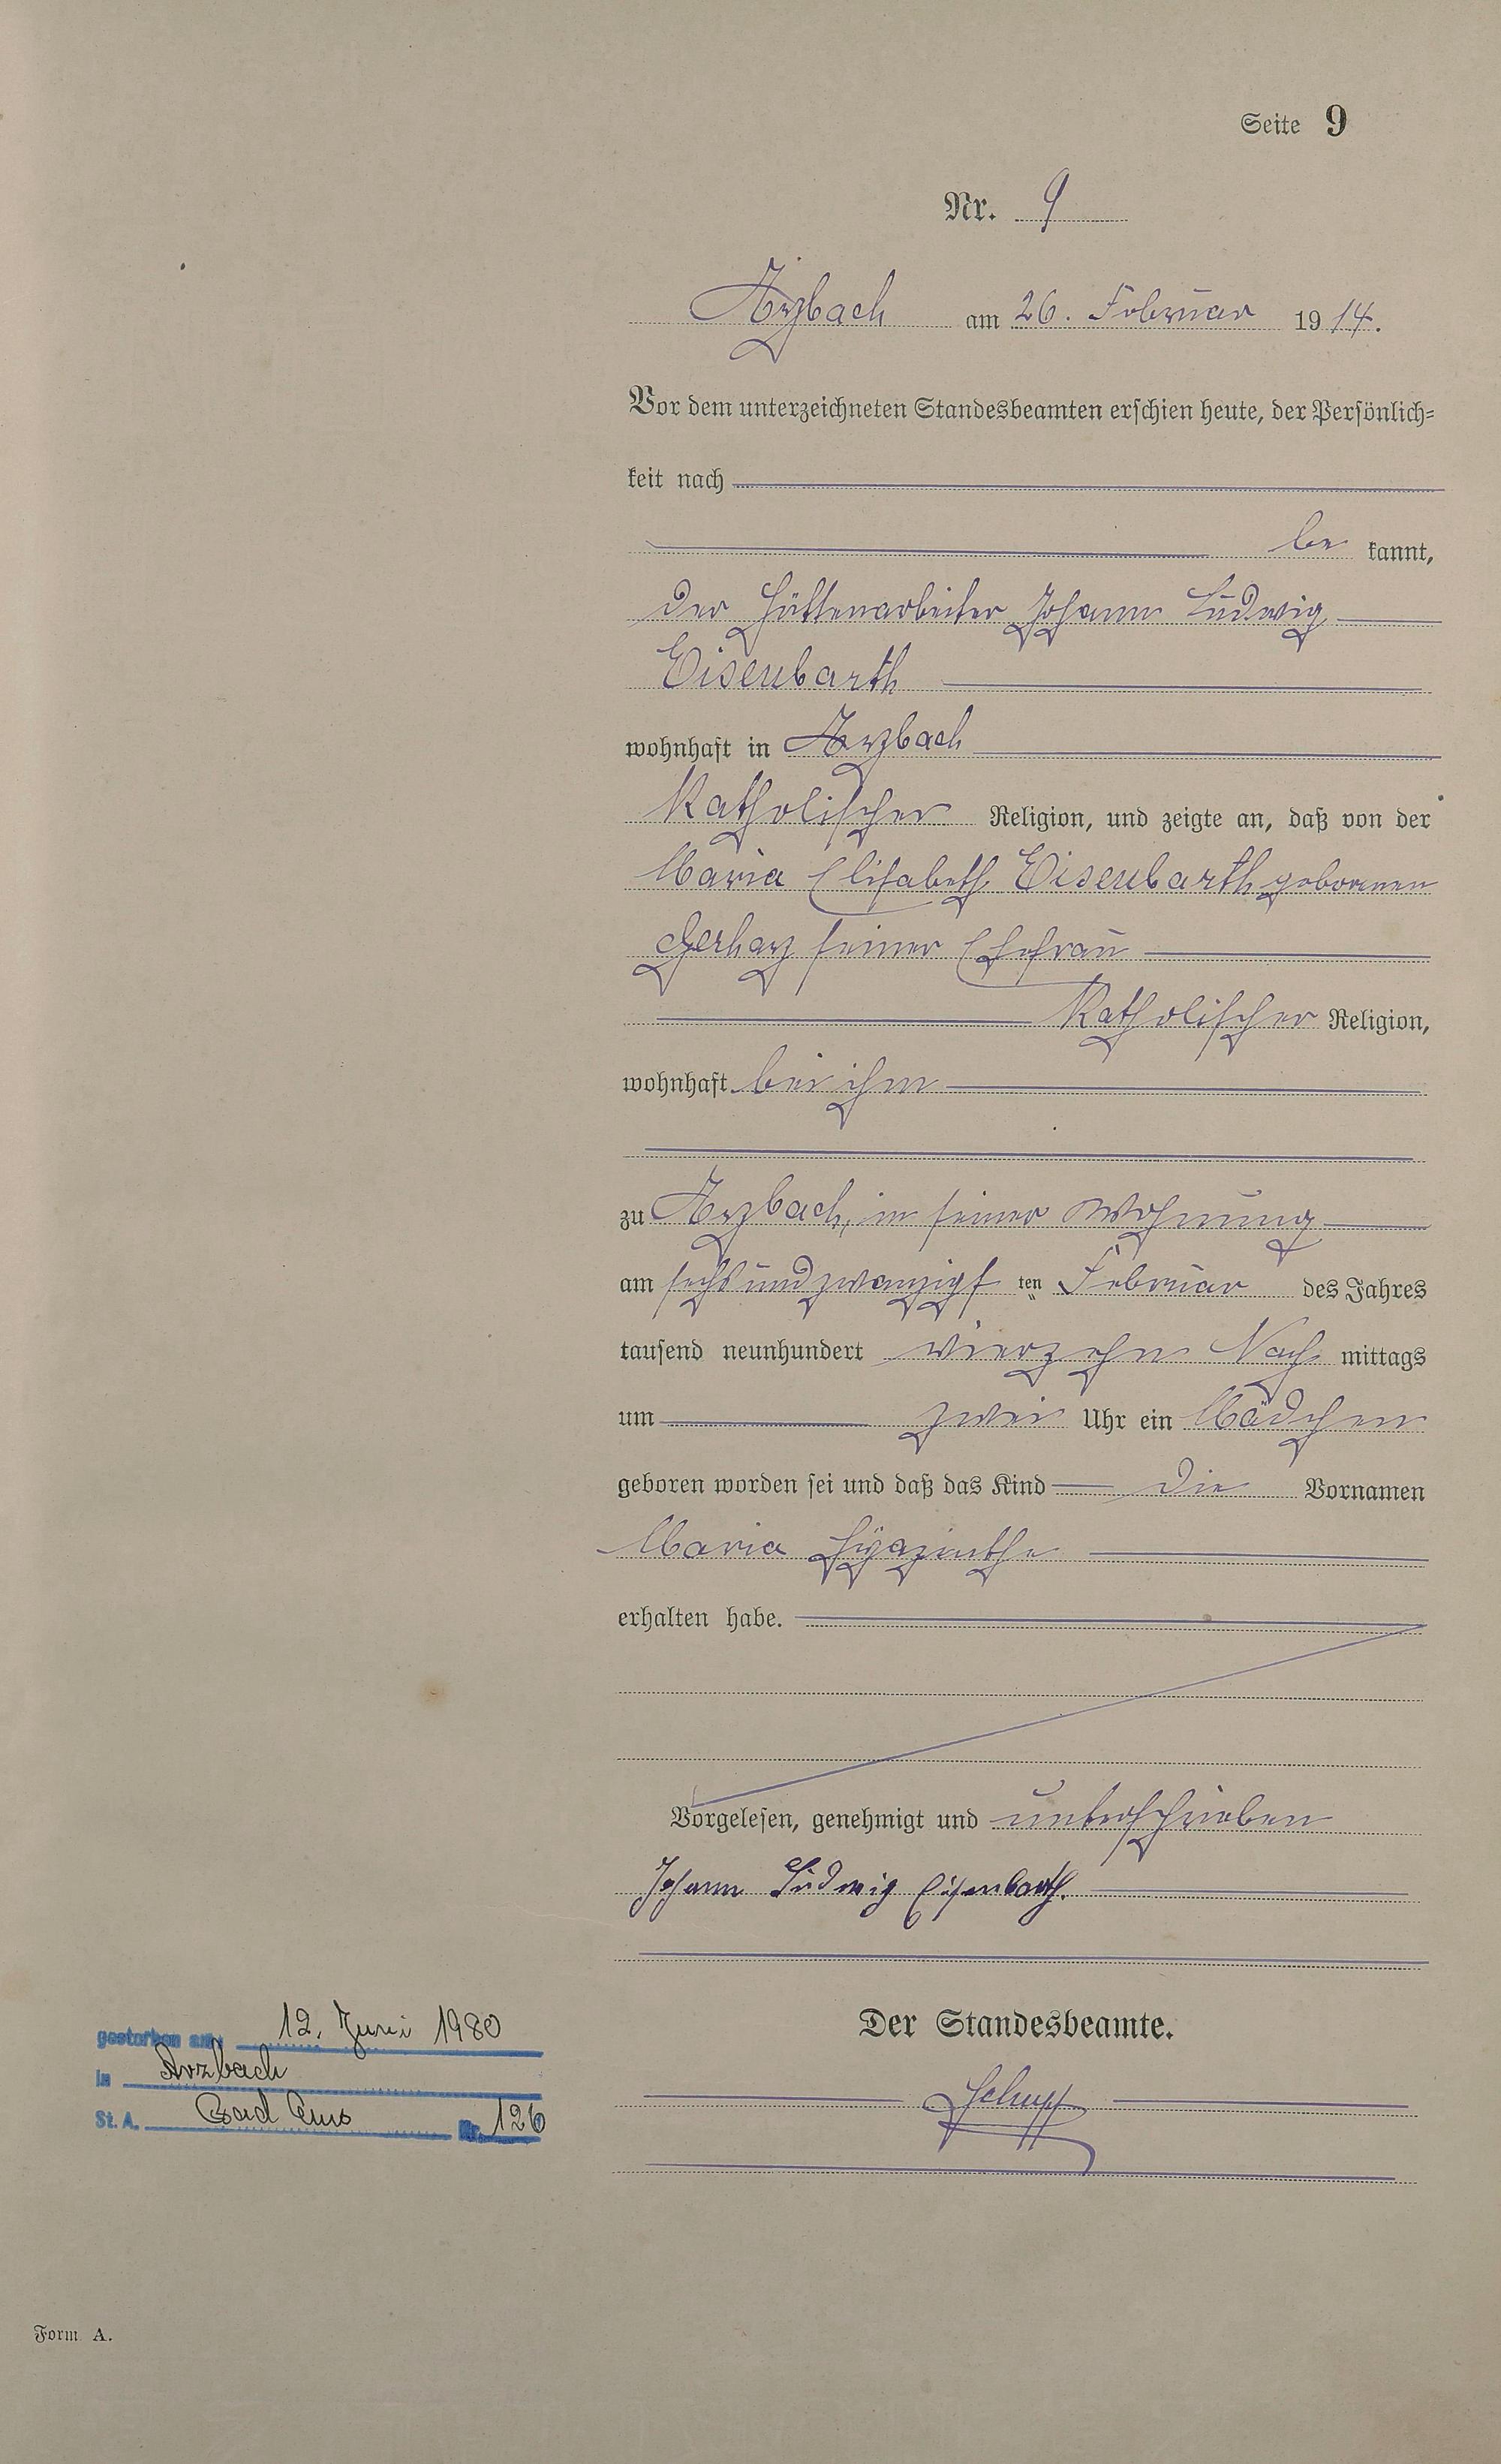 Seite 9
Nr. 9
Arzbach am 26. Februar 1914.
Vor dem unterzeichneten Standesbeamten erschien heute, der Persönlich-
keit nach
be kannt,
der Hüttenarbeiter Johann Ludwig
Eisenbarth
wohnhaft in Arzbach
katholischer Religion, und zeigte an, daß von der
Maria Elisabeth Eisenbarth geborenen
Gerharz seiner Ehefrau
katholischer Religion,
wohnhaft bei ihm
zu Arzbach, in seiner Wohnung
am sechsundzwanzigs ten Februar des Jahres
tausend neunhundert vierzehn Nach mittags
um zwei Uhr ein Mädchen
geboren worden sei und daß das Kind die Vornamen
Maria Hyazinthe
erhalten habe.
Vorgelesen, genehmigt und unterschrieben
Johann Ludwig Eisenbarth.
Der Standesbeamte.
Schupp
gestorben am 12. Juni 1980
in Arzbach
St. A. Bad Ems Nr. 126
Form A.